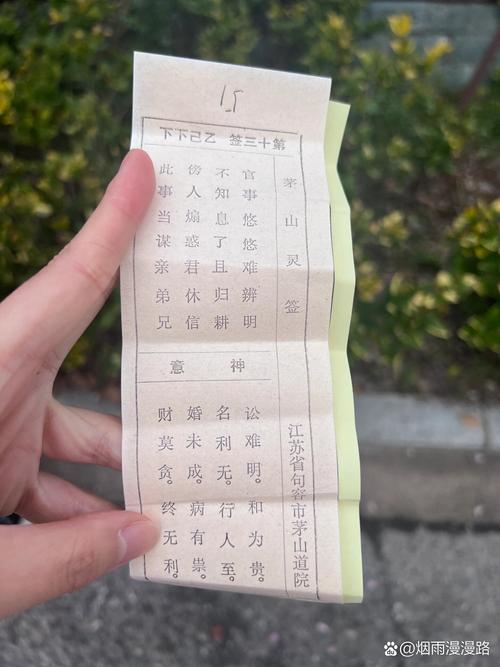 15
第十三签 乙己下下
茅山灵签
官事悠悠难辨明
不知息了且归耕
傍人煽惑君休信
此事当谋亲弟兄
神意
江苏省句容市茅山道院
讼难明。和为贵。
名利无。行人至。
婚未成。病有祟。
财莫贪。终无利。
百家号@烟雨漫漫路